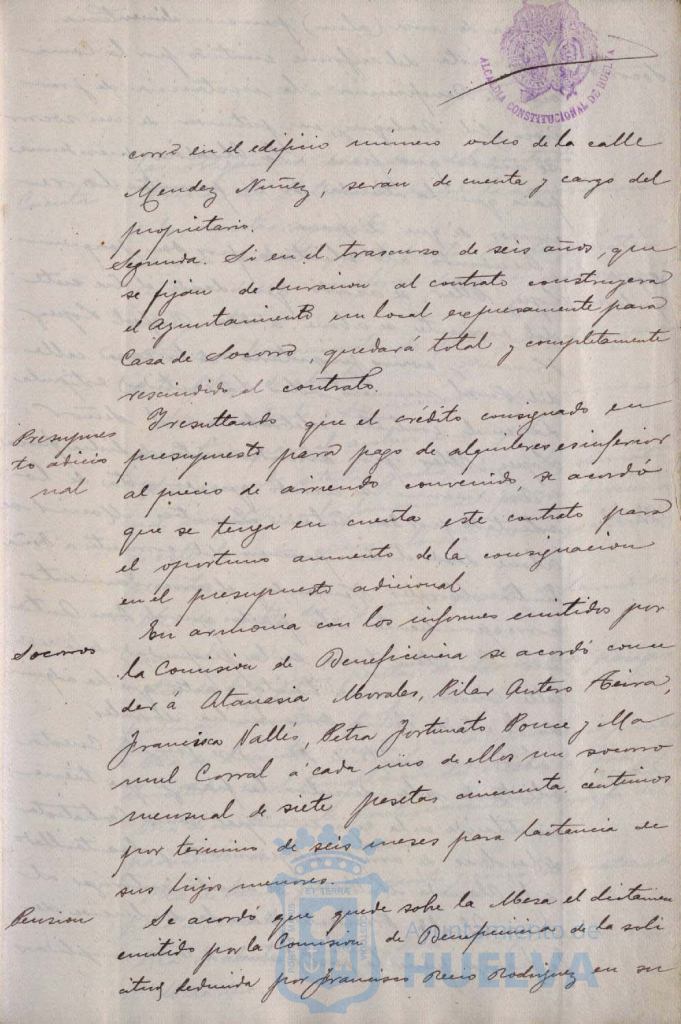 ALCALDIA CONSTITUCIONAL DE HUELVA
corro en el edificio número ocho de la calle
Mendez Nuñez, serán de cuenta y cargo del
propietario.
Segunda. Si en el trascurso de seis años, que
se fijan de duracion al contrato construyera
el Ayuntamiento un local expresamente para
Casa de Socorro, quedará total y completamente
rescindido el contrato.
Presupues
to adicio
nal
Y resultando que el crédito consignado en
presupuesto para pago de alquileres es inferior
al precio de arriendo convenido, se acordó
que se tenga en cuenta este contrato para
el oportuno aumento de la consignacion
en el presupuesto adicional
Socorros
En armonia con los informes emitidos por
la Comision de Beneficencia se acordó conce
der á Atanasia Morales, Pilar Antero
Francisca Vallés, Petra Fortunato Ponce y Ma
nuel Corral á cada uno de ellos un socorro
mensual de siete pesetas cincuenta céntimos
por termino de seis meses para lactancia de
sus hijos menores.
Pension
Se acordó que quede sobre la Mesa el dictamen
emitido por la Comision de Beneficencia de la soli
citud deducida por Francisco Recio Rodriguez en su
Ayuntamiento de
HUELVA